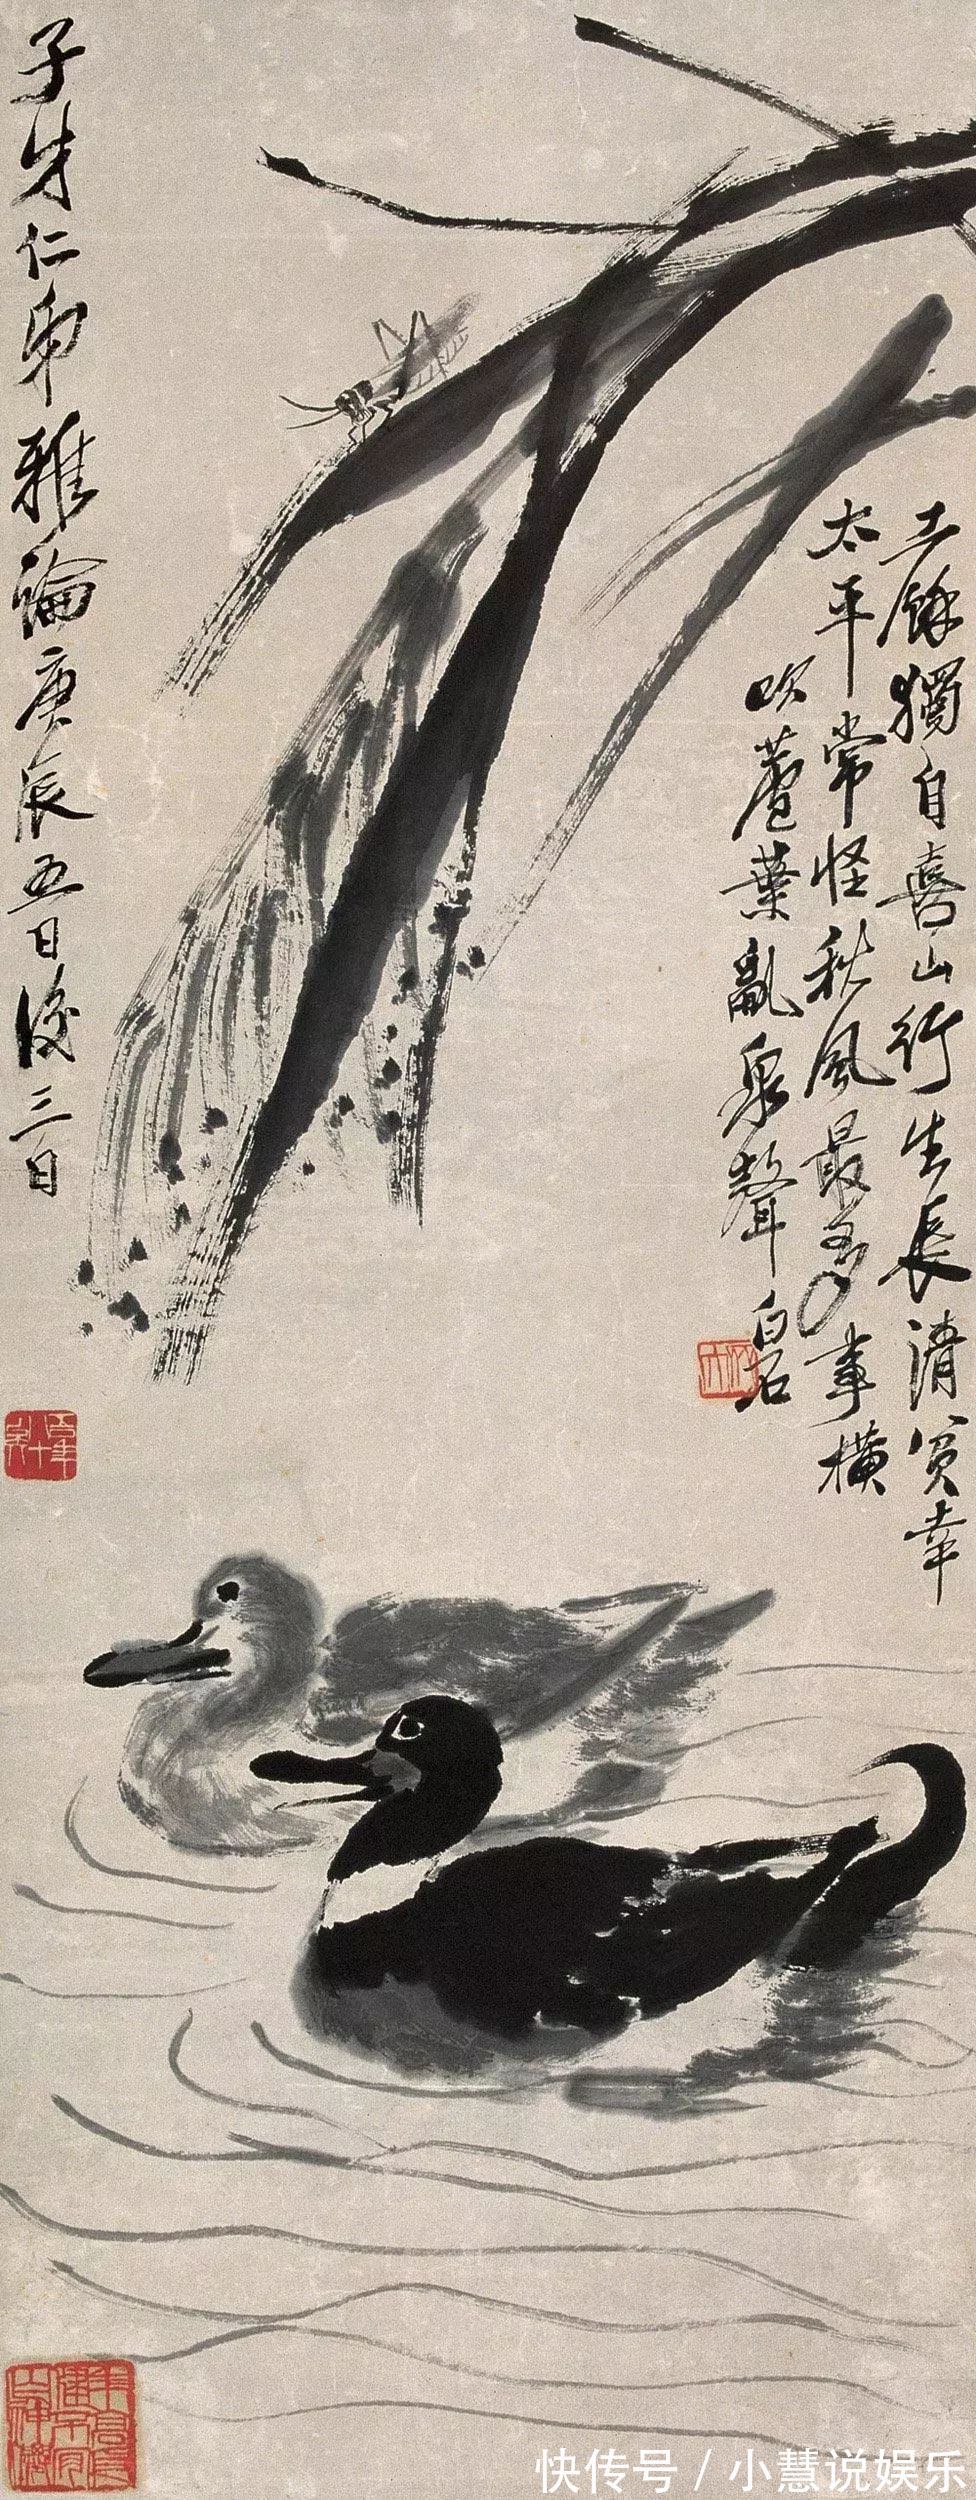 工餘獨自喜山行生長清貧幸
太平常怪秋風最多事橫
吹蘆葉亂泉聲白石
子朱仁弟雅論庚辰五日後三日
快传号/小慧说娱乐